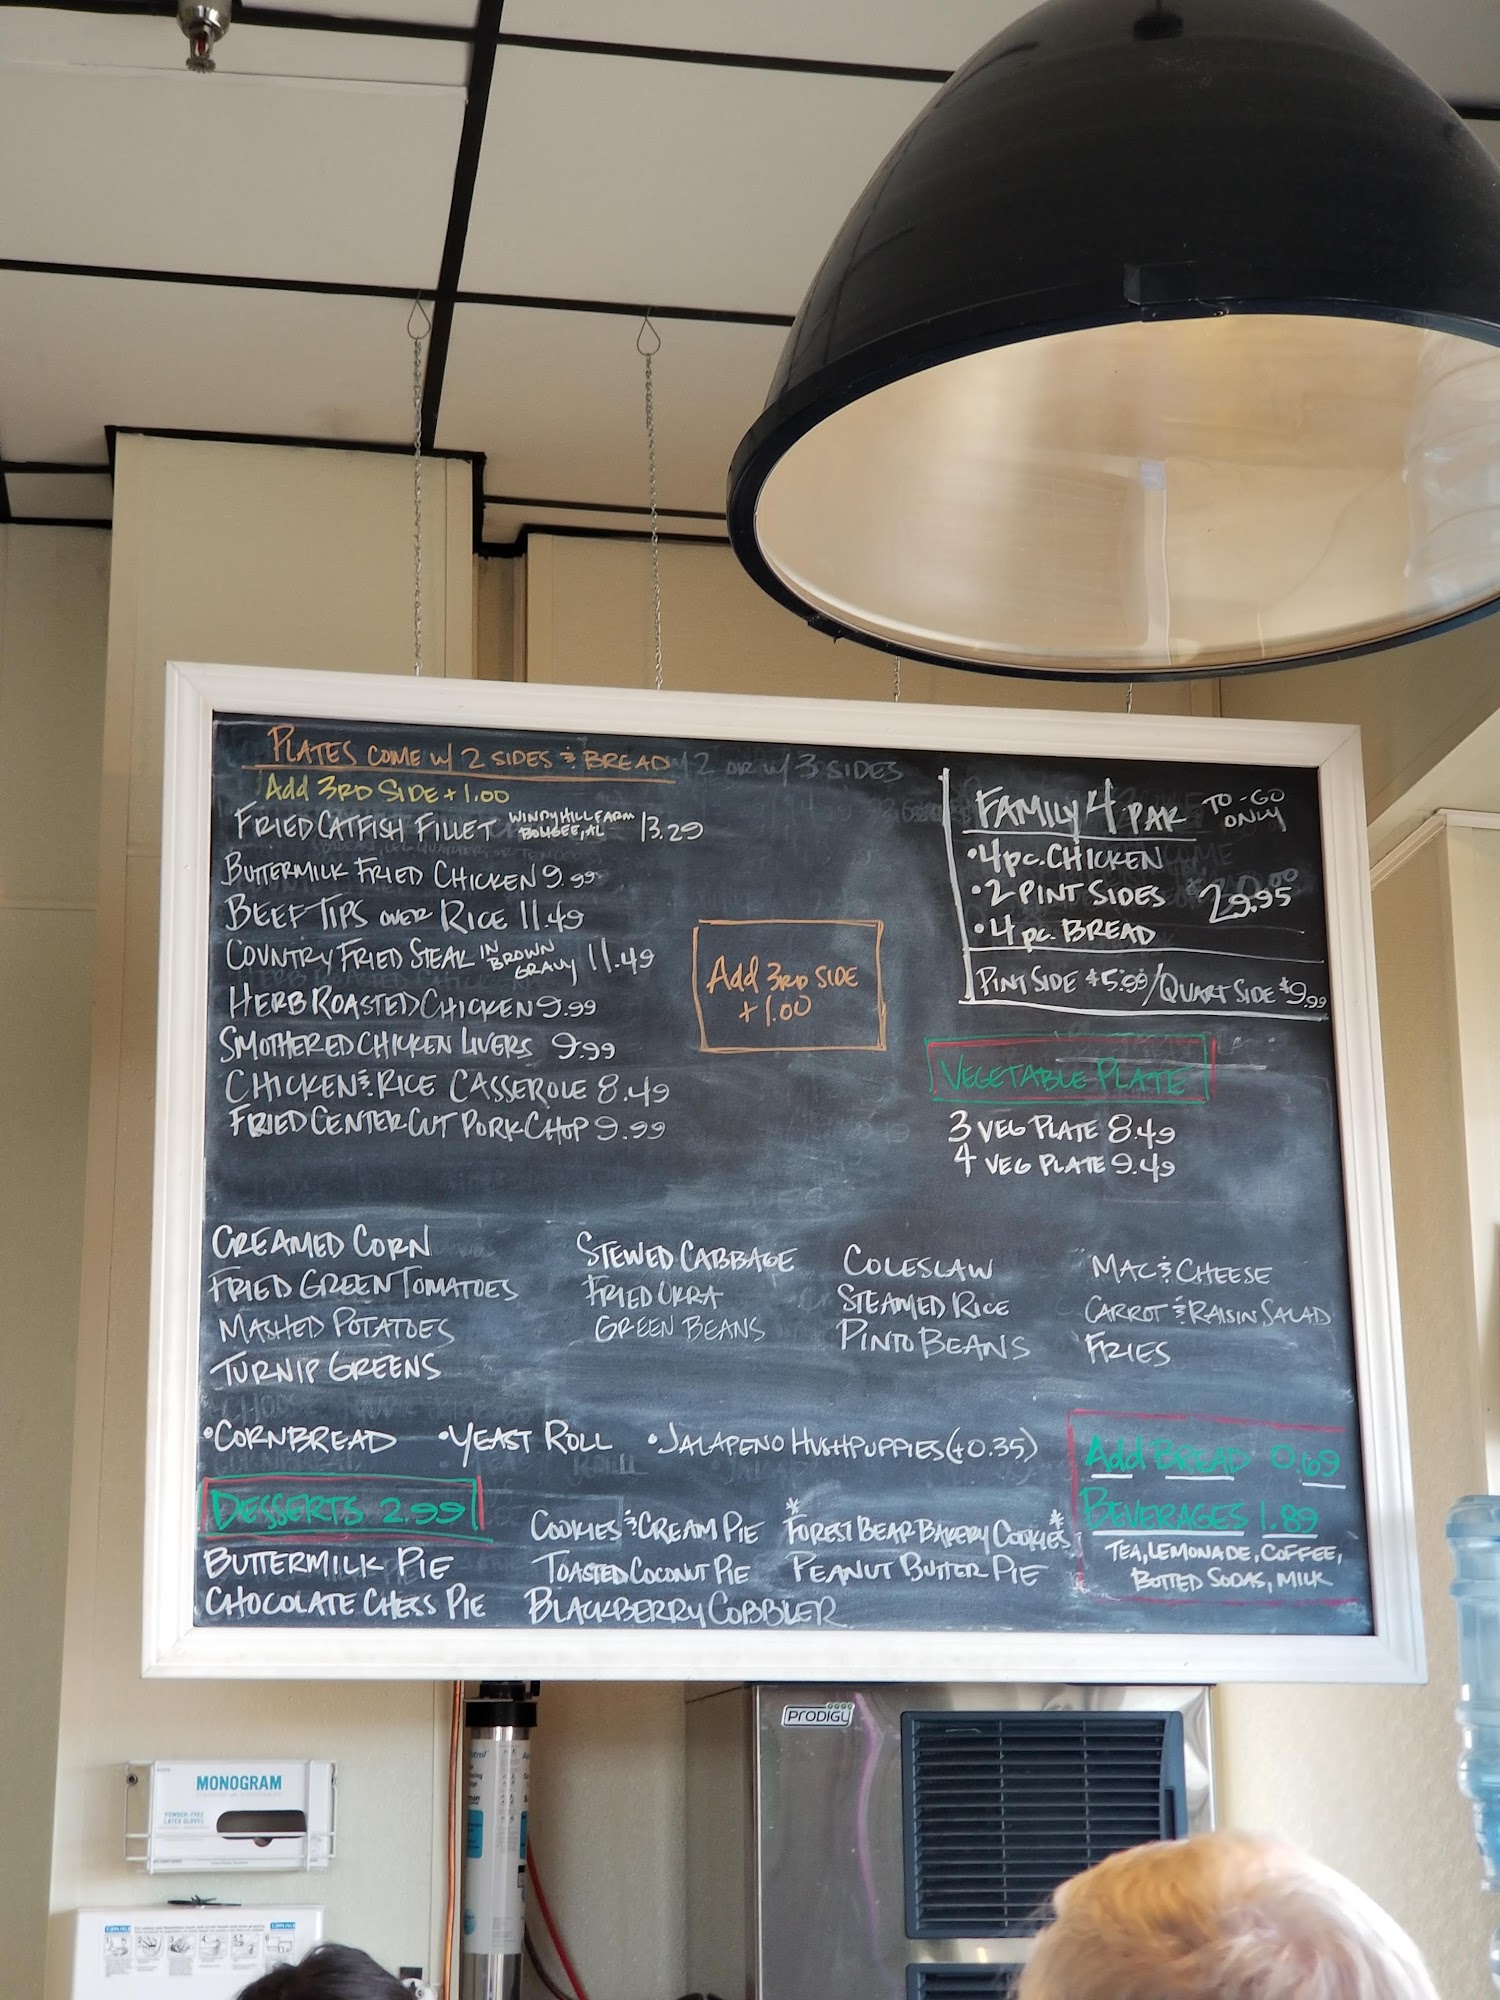 PLATES COME w/ 2 SIDES & BREAD
Add 3RD SIDE + 1.00
FRIED CATFISH FILLET WINDY HILL FARM BOLIGEE, AL 13.29
BUTTERMILK FRIED CHICKEN 9.99
BEEF TIPS OVER RICE 11.49
COUNTRY FRIED STEAK IN BROWN GRAVY 11.49
HERB ROASTED CHICKEN 9.99
SMOTHERED CHICKEN LIVERS 9.99
CHICKEN & RICE CASSEROLE 8.49
FRIED CENTER CUT PORK CHOP 9.99
Add 3RD SIDE
+ 1.00
FAMILY 4 PAK TO-GO ONLY
• 4 pc. CHICKEN
• 2 PINT SIDES 29.95
• 4 pc. BREAD
PINT SIDE $5.99/QUART SIDE $9.99
VEGETABLE PLATE
3 VEG PLATE 8.49
4 VEG PLATE 9.49
CREAMED CORN
FRIED GREEN TOMATOES
MASHED POTATOES
TURNIP GREENS
STEWED CABBAGE
FRIED OKRA
GREEN BEANS
COLESLAW
STEAMED RICE
PINTO BEANS
MAC & CHEESE
CARROT & RAISIN SALAD
FRIES
• CORNBREAD • YEAST ROLL • JALAPENO HUSHPUPPIES (+0.35)
DESSERTS 2.99
BUTTERMILK PIE
CHOCOLATE CHESS PIE
COOKIES & CREAM PIE
TOASTED COCONUT PIE
BLACKBERRY COBBLER
* FOREST BEAR BAKERY COOKIES *
PEANUT BUTTER PIE
Add BREAD 0.69
BEVERAGES 1.89
TEA, LEMONADE, COFFEE,
BOTTED SODAS, MILK
PRODIGY
MONOGRAM
POWDER-FREE
LATEX GLOVES